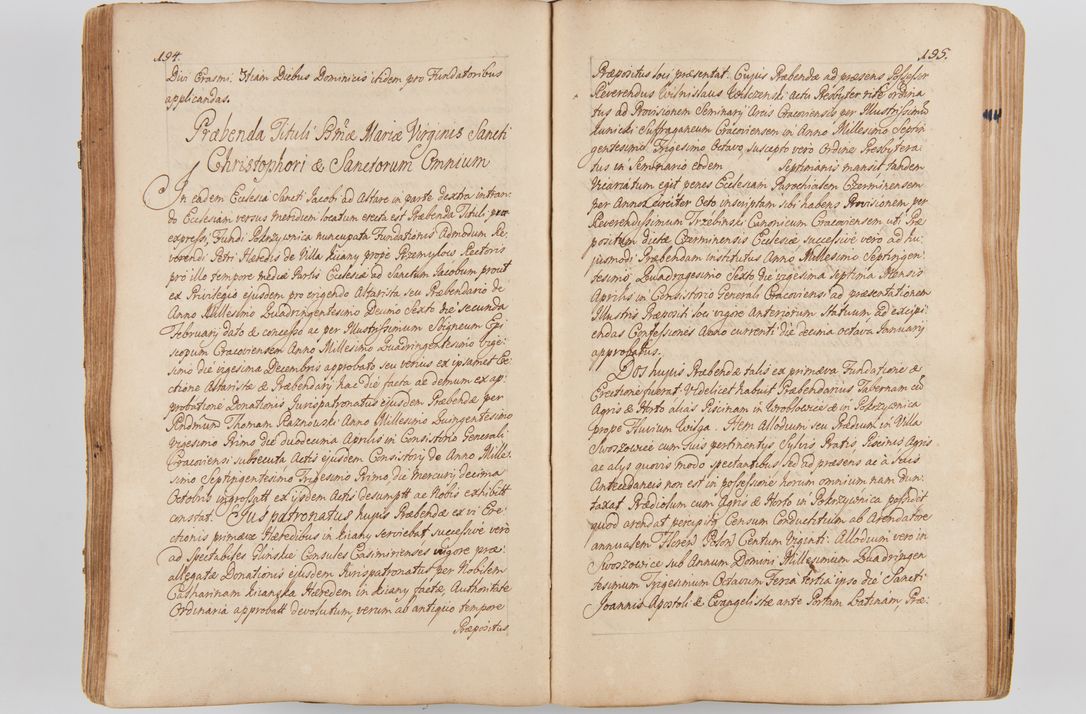 194.
Divi Erasmi. Item Diebus Dominicis itidem pro Fundatoribus
applicandas.
Præbenda Tituli Bmæ Mariæ Virginis Sancti
Christophori & Sanctorum Omnium
In eadem Ecclesia Sancti Jacobi ad Altare in parte dextra intran-
do Ecclesiam versus meridiem locatum erecta est Præbenda Tituli, præ
expressi, Fundi Pobrzywnica nuncupata Fundationis Admodum Re,
verendi Petri Hæredis de Villa Kiiany prope Przemykow Rectoris
pro illo tempore mediæ Partis Ecclesiæ ad Sanctum Jacobum prout
ex Privilegio ejusdem pro erigendo Altarista seu Præbendario de
Anno Millesimo Quadringentesimo Decimo Sexto die secunda
February dato & concesso ac per Illustrissimum Sbigneum Epi
scopum Cracoviensem Anno Millesimo Quadringentesimo Vige
simo die vigesima Decembris approbato seu verius ex ipsamet Ere
ctione Altaristæ & Præbendarij hac die facta ac demum ex ap:
probatione Donationis Jurispatronatus ejusdem Præbendæ per
Rndmum Thomam Raznowski Anno Millesimo Quingentesimo
vigesimo Primo die duodecima Aprilis in Consistorio Generali
Cracoviensi subsecuta Actis ejusdem Consistorij de Anno Mille:
simo Septingentesimo Trigesimo Primo, die Mercurij decima
Octobris ingrossatt ex ijsdem Actis desumptt ac Nobis exhibitt
constat. Jus patronatus hujus Præbendæ ex vi Ere
ctionis primævæ Hæredibus in Kiiany serviebat successive vero
ad Spectabiles Consules Casimirienses vigore præ:
allegatæ Donationis ejusdem Jurispatronatus per Nobilem
Catharinam Kiianska Hæredem in Kiiany factæ, Authoritate
Ordinaria approbatt devolutum, verum ab antiquo tempore
Præpositus
195.
Præpositus loci præsentat. Cujus Præbendæ ad præsens Possessor
Reverendus Wisnislaus Wilczenski actu Presbyter rite ordina
tus ad Provisionem Seminarij Arcis Cracoviensis per Illustrissimū
Kunicki Suffraganeum Cracoviensem in Anno Millesimo Septin
gentesimo Trigesimo Octavo, suscepto vero Ordine Presbytera
tus in Seminario eodem Septimanis mansit tandem
Vicariatum egit penes Ecclesiam Parochialem Czerminensem
per Annos circiter Octo inscriptam sibi habens Provisionem per
Reverendissimum Trzebinski Canonicum Cracoviensem uti Præ
positum dictæ Czerminensis Ecclesiæ successive vero ad hu
jusmodi Præbendam institutus Anno Millesimo Septingen:
tesimo Quadragesimo Sexto die vigesima septima Mensis
Aprilis in Consistorio Generali Cracoviensi ad præsentationem
Illustris Præpositi loci vigore Anteriorum Statuum ad excipi
endas Confessiones Anno currenti die decima octava January
approbatus.
Dos hujus Præbendæ talis ex primæva Fundatione &
Erectione fuerat Videlicet habuit Præbendarius Tabernam cū
Agris & Horto alias Piscinam in Wroblowice & in Pobrzywnica
prope Fluvium Wisga. Item Allodium seu Prædium in Villa
Swoszowice cum suis pertinentijs Sylvis Pratis Piscinis Agris
ac alijs quovis modo spectantibus sed ad præsens ac à suis
Antecedaneis non est in possessione horum omnium nam Dun:
taxat Prædiolum cum Agris & Horto in Pobrzywnica possidit
quod arendat percipitq Censum Conductitium ab Arendatore
annualem Floren Polon Centum Viginti. Allodium vero in
Swoszowice sub Annum Domini Millesimum Quadringen
tesimum Trigesimum Octavum Feria tertia ipso die Sancti
Joannis Apostoli & Evangelistæ ante Portam Latinam Præ: